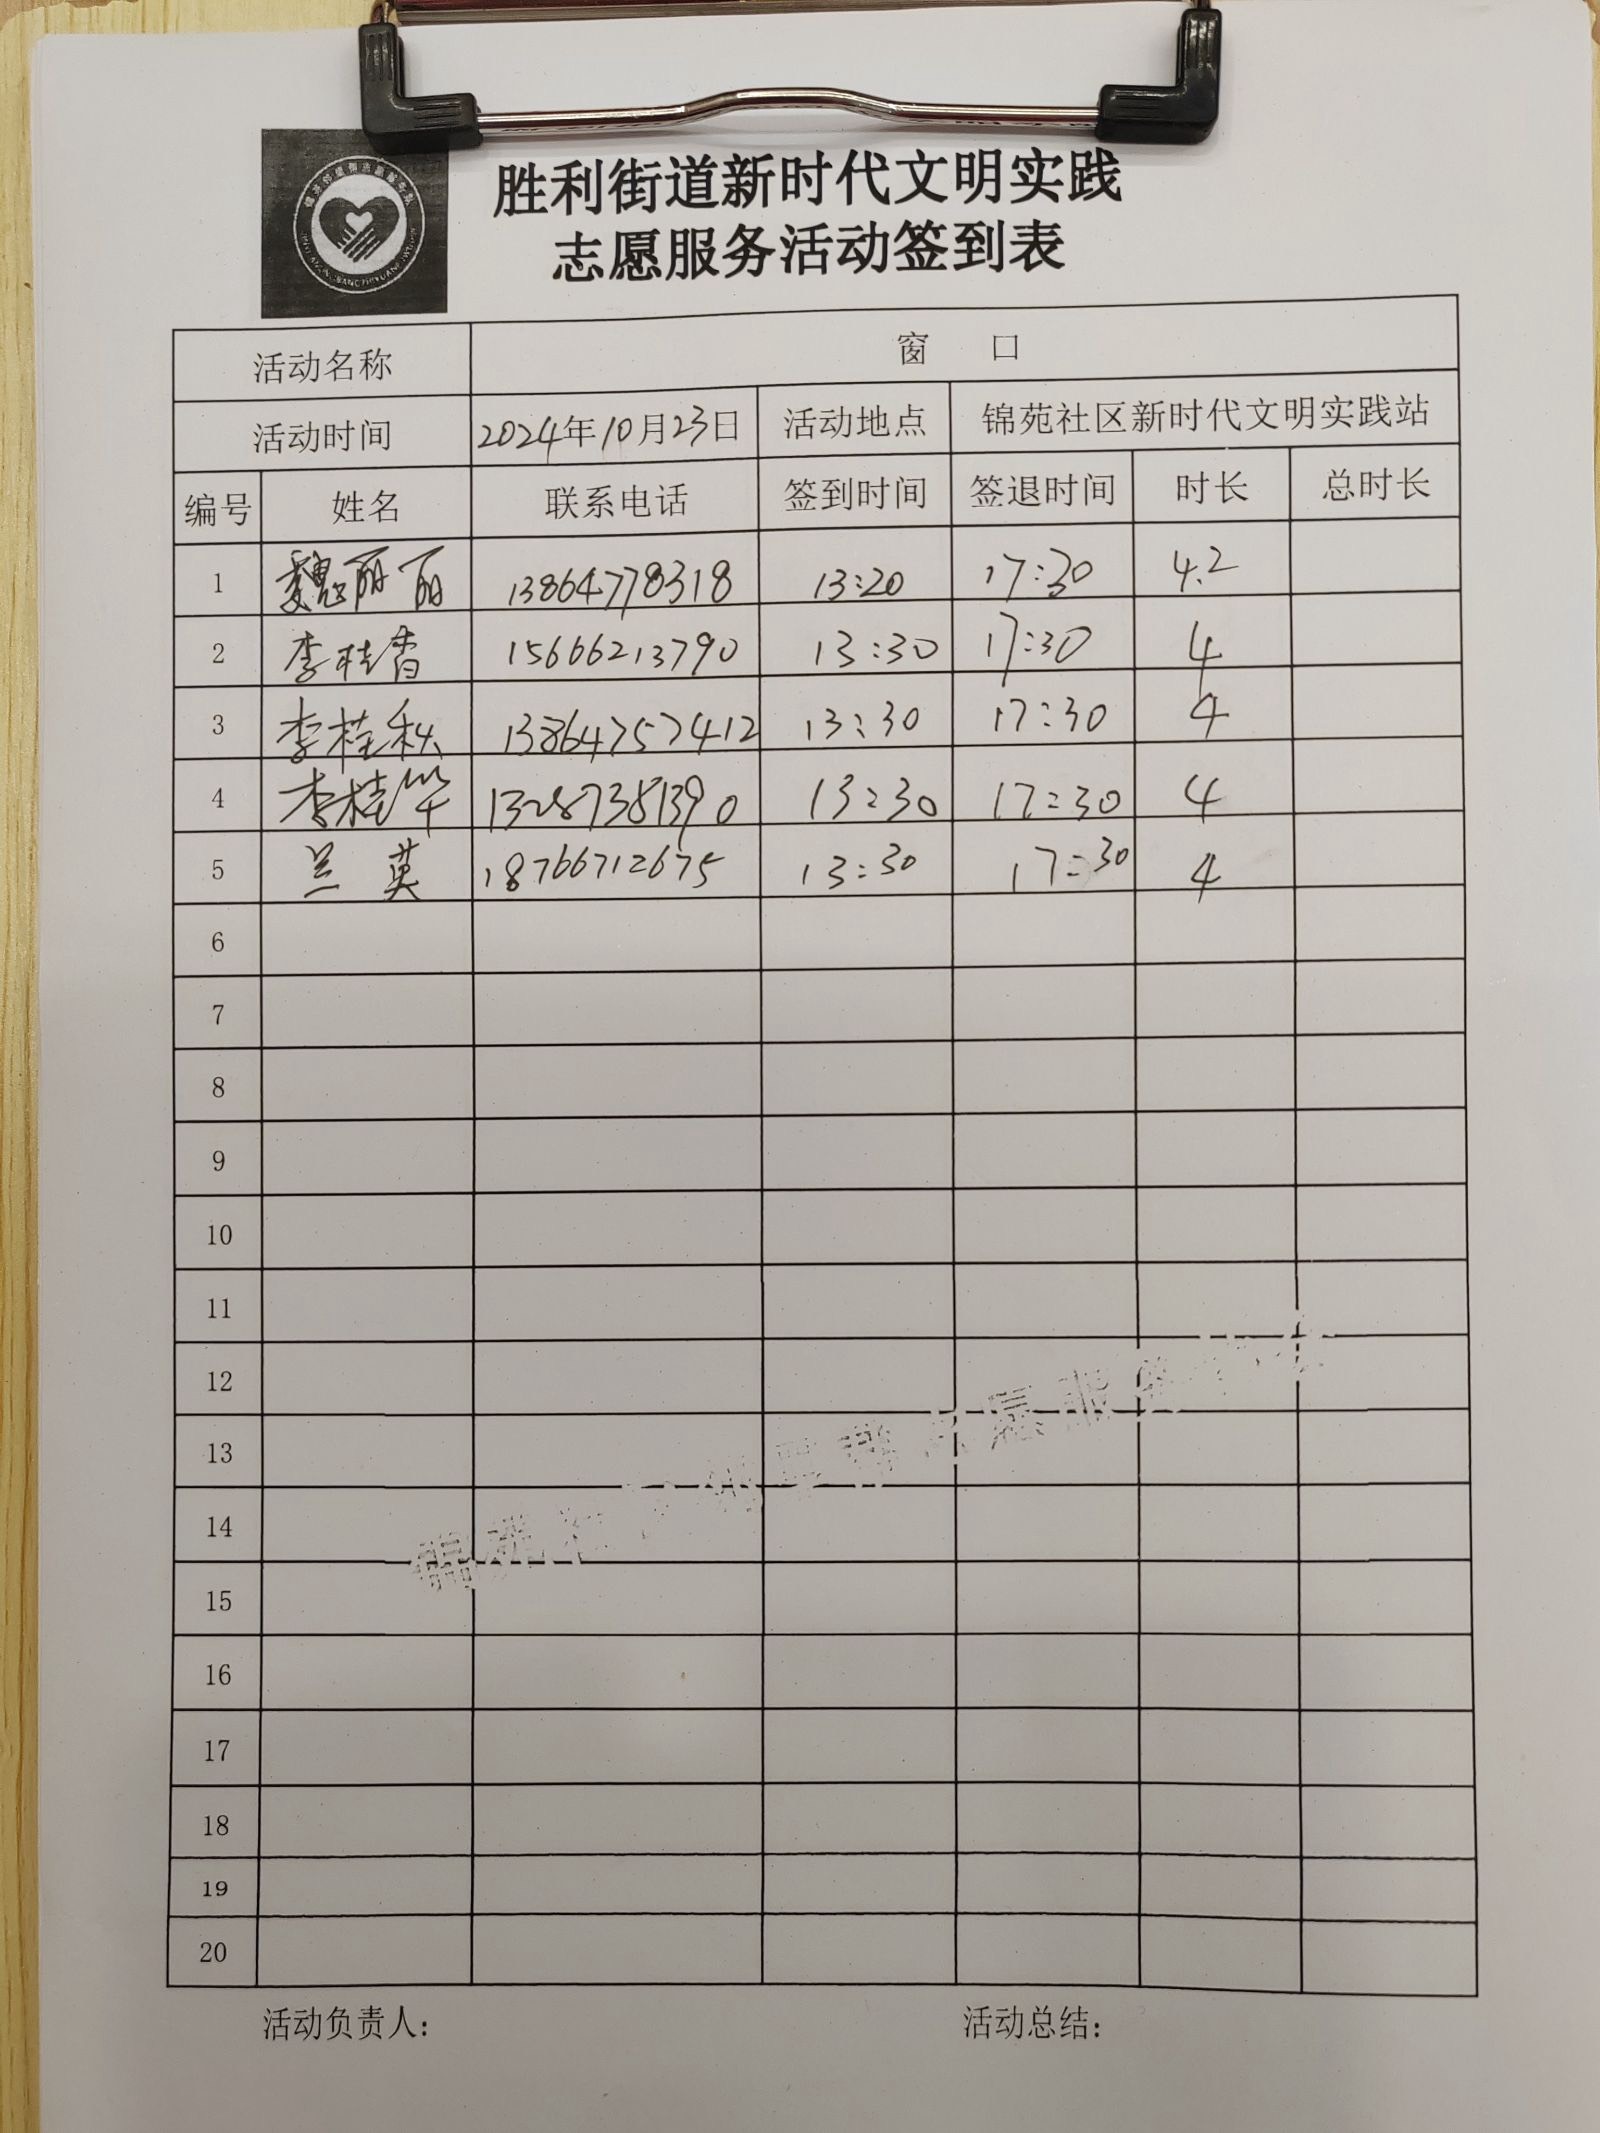 胜利街道新时代文明实践
志愿服务活动签到表
活动名称 窗 口
活动时间 2024年10月23日 活动地点 锦苑社区新时代文明实践站
编号 姓名 联系电话 签到时间 签退时间 时长 总时长
1 魏丽丽 13864778318 13:20 17:30 4.2
2 李桂香 15666213790 13:30 17:30 4
3 李桂秋 13864757412 13:30 17:30 4
4 李桂华 13287381390 13:30 17:30 4
5 兰英 18766712675 13:30 17:30 4
6
7
8
9
10
11
12
13
14
15
16
17
18
19
20
活动负责人： 活动总结：